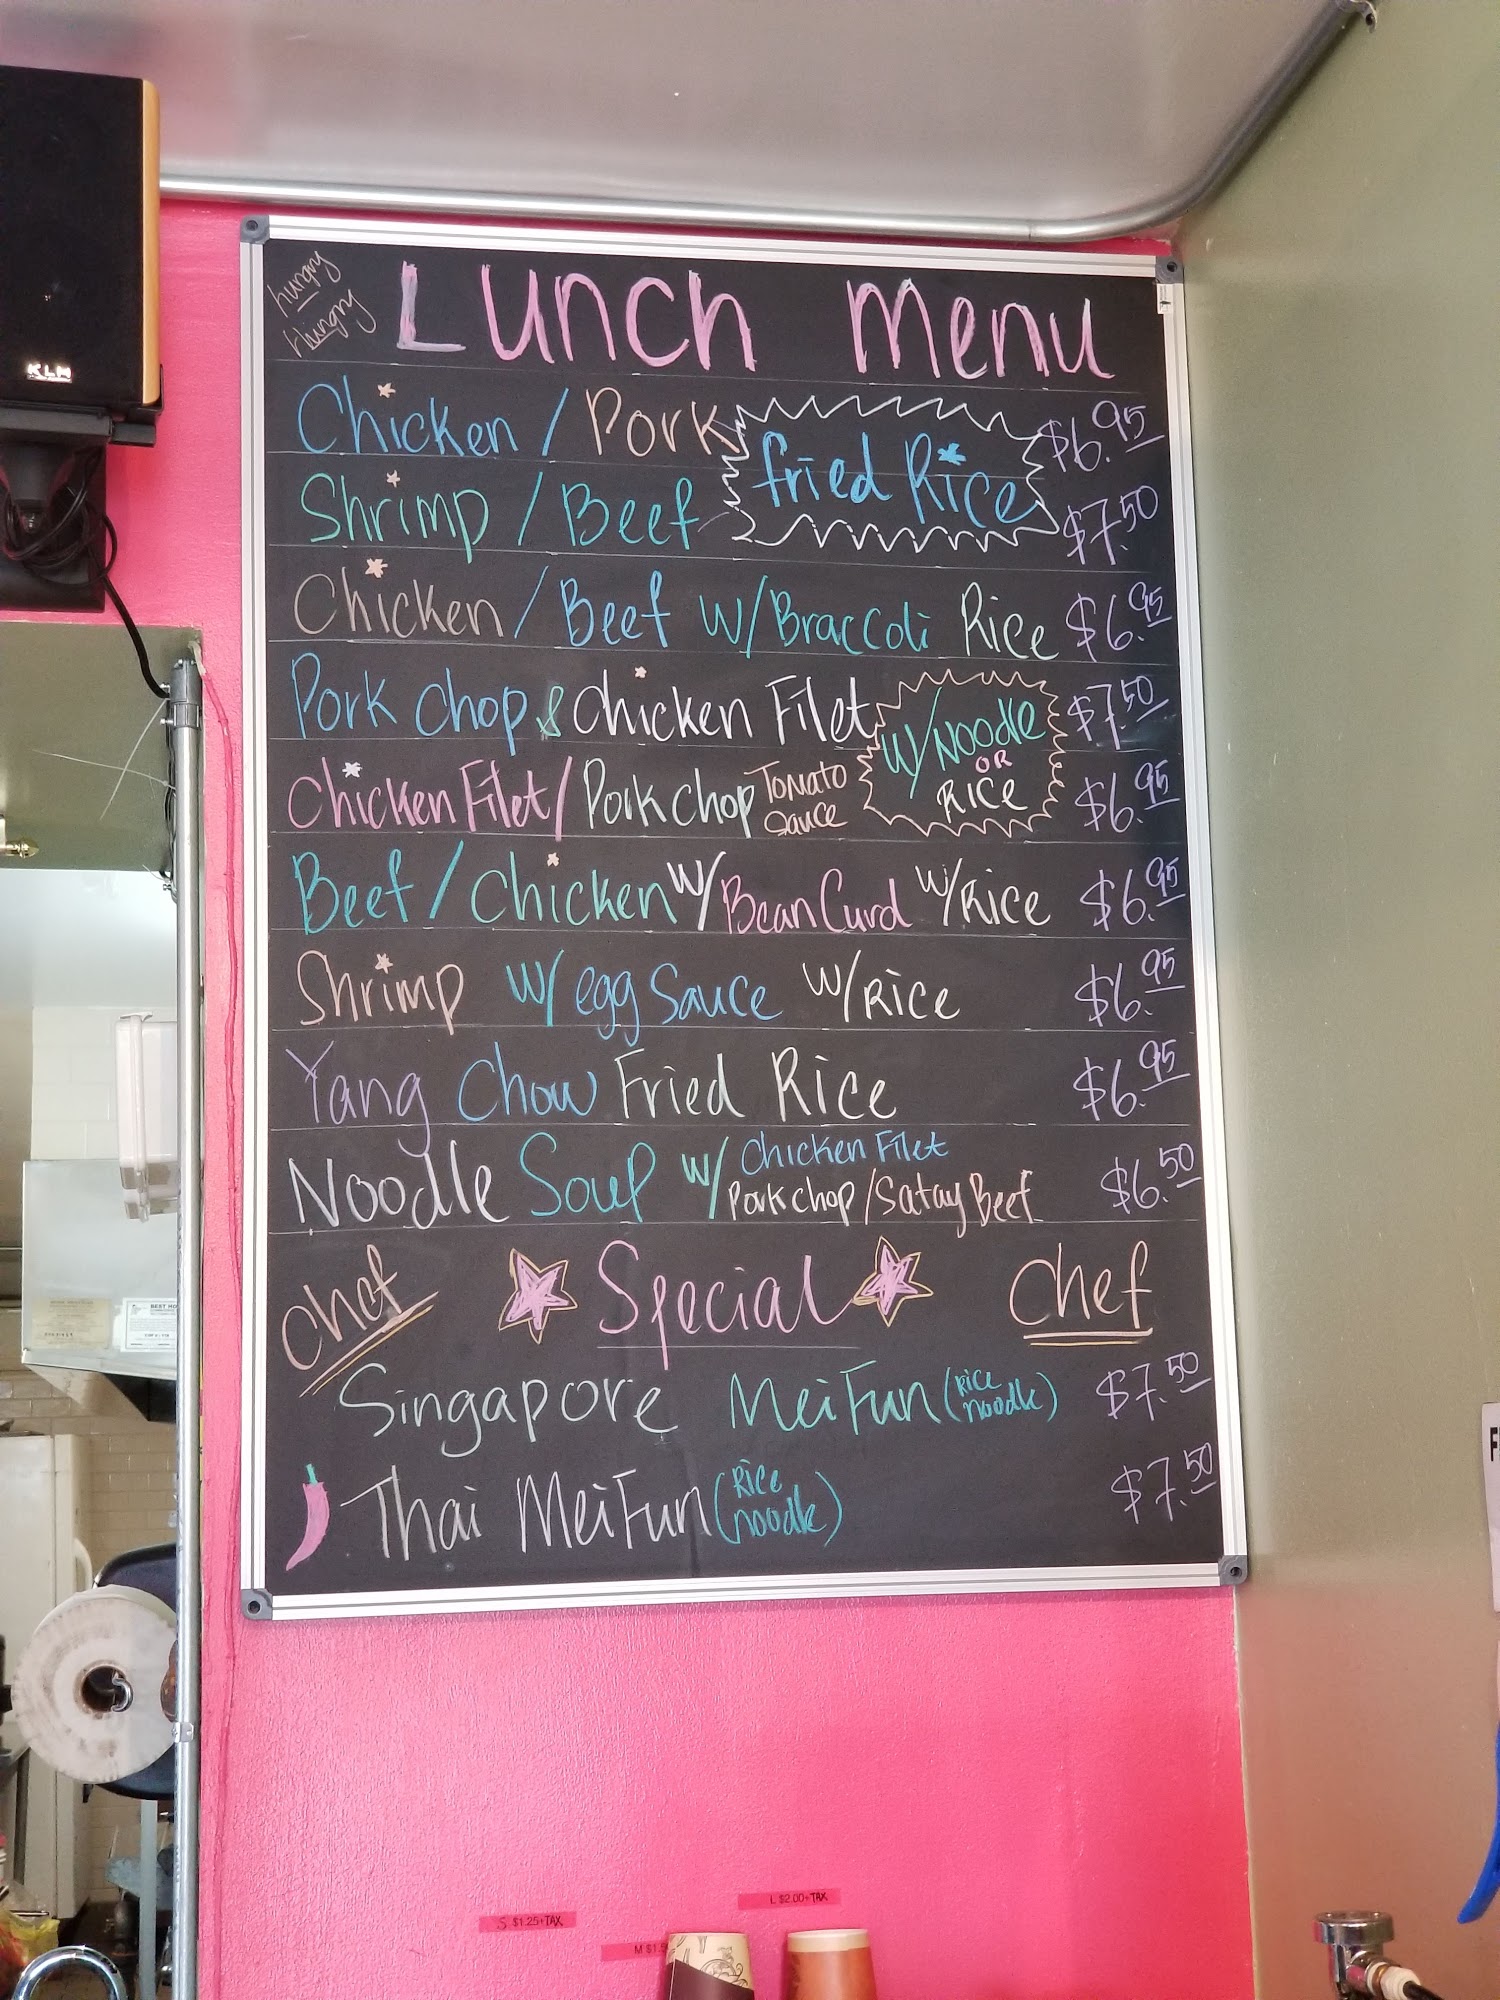 hungry
Hungry
Lunch Menu
Chicken / Pork
Fried Rice
$6.95
Shrimp / Beef
$7.50
Chicken / Beef w/ Braccoli Rice $6.95
Pork Chop & Chicken Filet $7.50
w/ Noodle
OR
Rice
Chicken Filet / Pork chop Tomato Sauce $6.95
Beef / Chicken w/ Bean Curd w/ Rice $6.95
Shrimp w/ egg Sauce w/ Rice $6.95
Yang Chow Fried Rice $6.95
Noodle Soup w/ Chicken Filet
Pork chop / Satay Beef $6.50
Chef Special Chef
Singapore Mei Fun (Rice noodle) $7.50
Thai Mei Fun (Rice noodle) $7.50
KLM
BEST
L $2.00+TAX
S $1.25+TAX